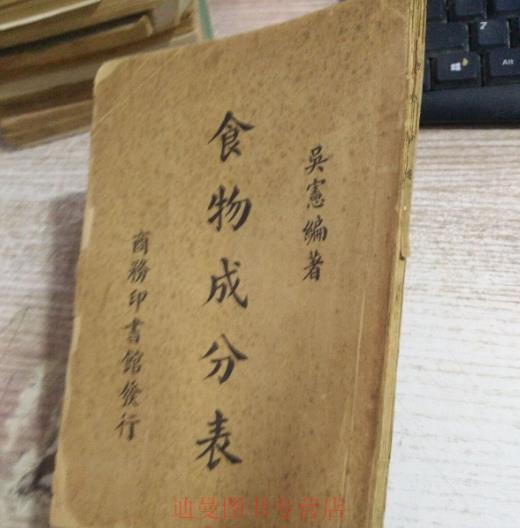 吳憲編著
食物成分表
商務印書館發行
迪曼图书专营店
Alt